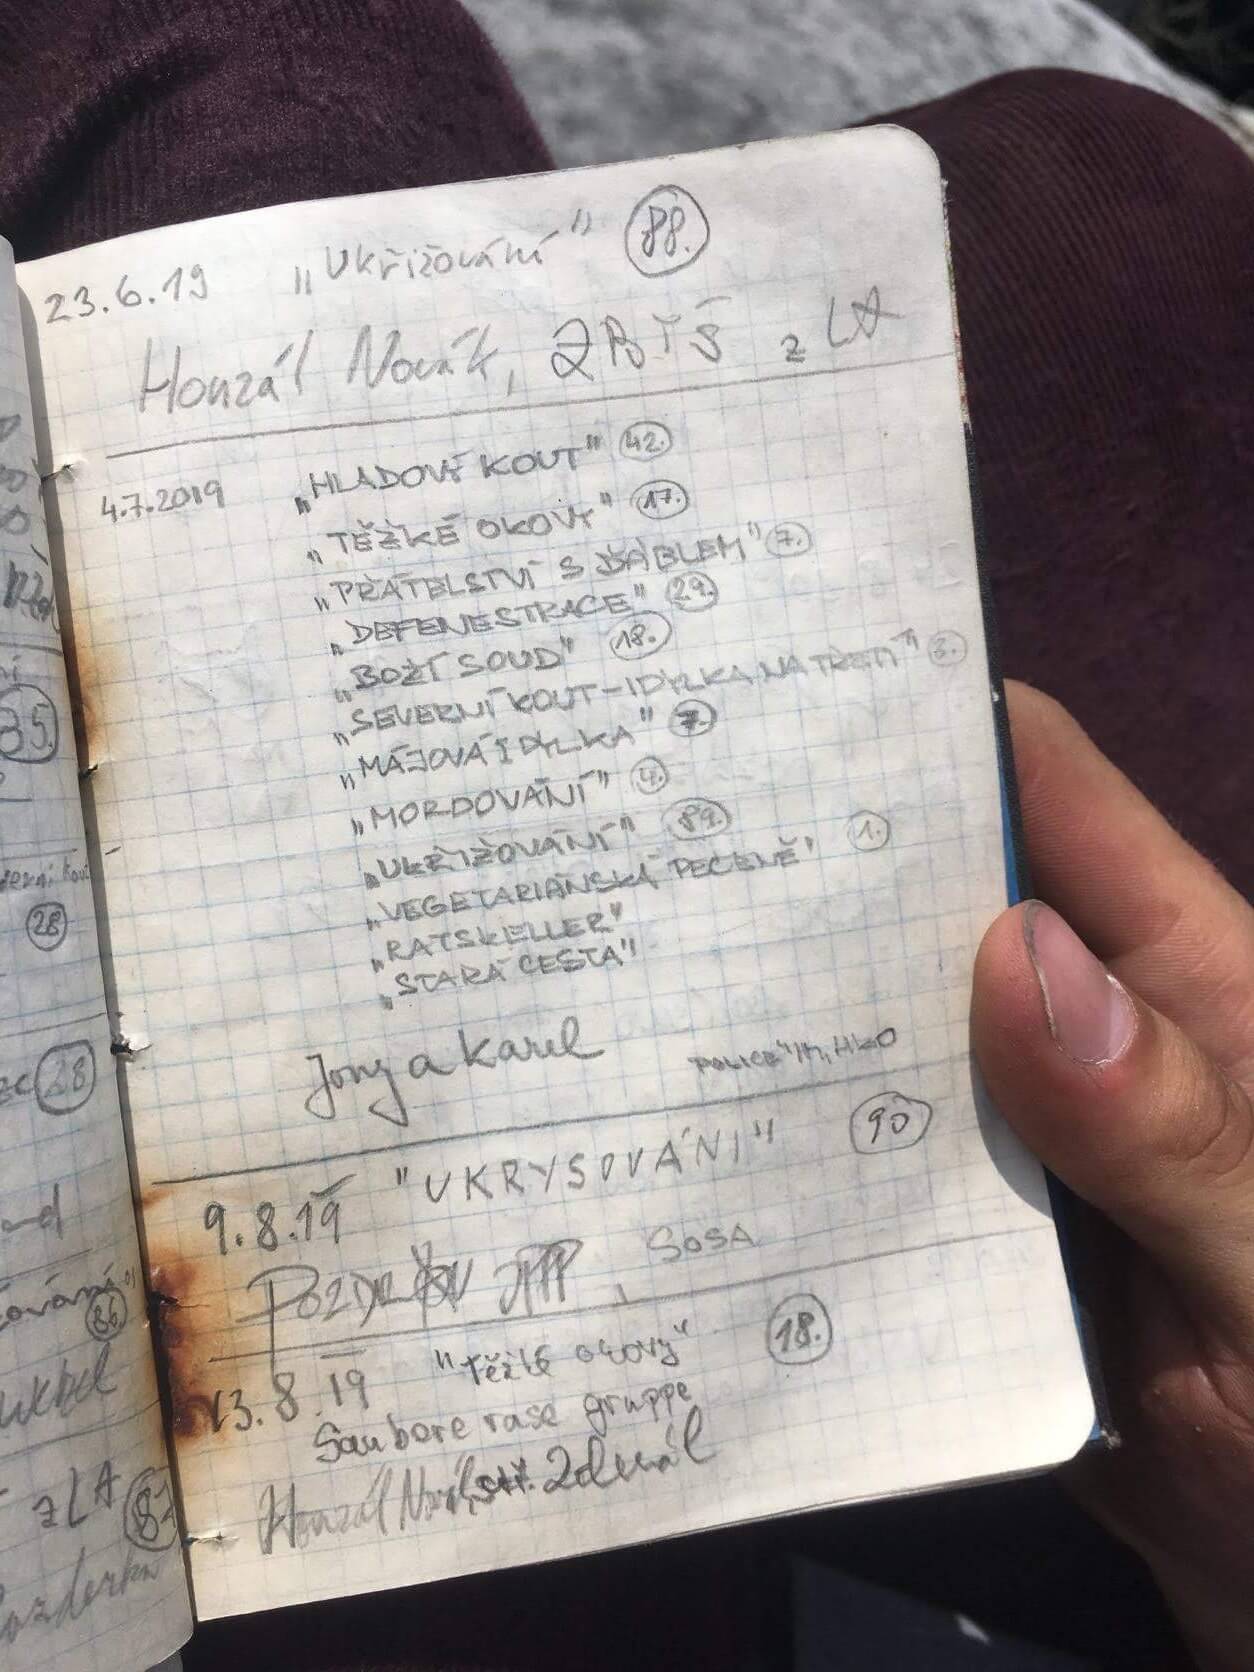 23.6.19 „Ukřižování" 88.
Honzál Novák, z LA
4.7.2019 „HLADOVÝ KOUT" 42.
„TĚŽKÉ OKOVY" 17.
„PŘÁTELSTVÍ S ĎÁBLEM" 7.
„DEFENESTRACE" 29.
„BOŽÍ SOUD" 18.
„SEVERNÍ KOUT-IDYLKA NA TŘETÍ" 3.
„MÁJOVÁ IDYLKA" 7.
„MORDOVÁNÍ" 4.
„UKŘIŽOVÁNÍ" 89.
„VEGETARIÁNSKÁ PEČENĚ" 1.
„RATSKELLER"
„STARÁ CESTA"
Jony a Karel
9.8.19 "UKRYSOVÁNÍ" 90
SOSA
13.8.19 "Těžké okovy" 18.
Saubere rase gruppe
Honzál
35.
28
28
86
z LA 87